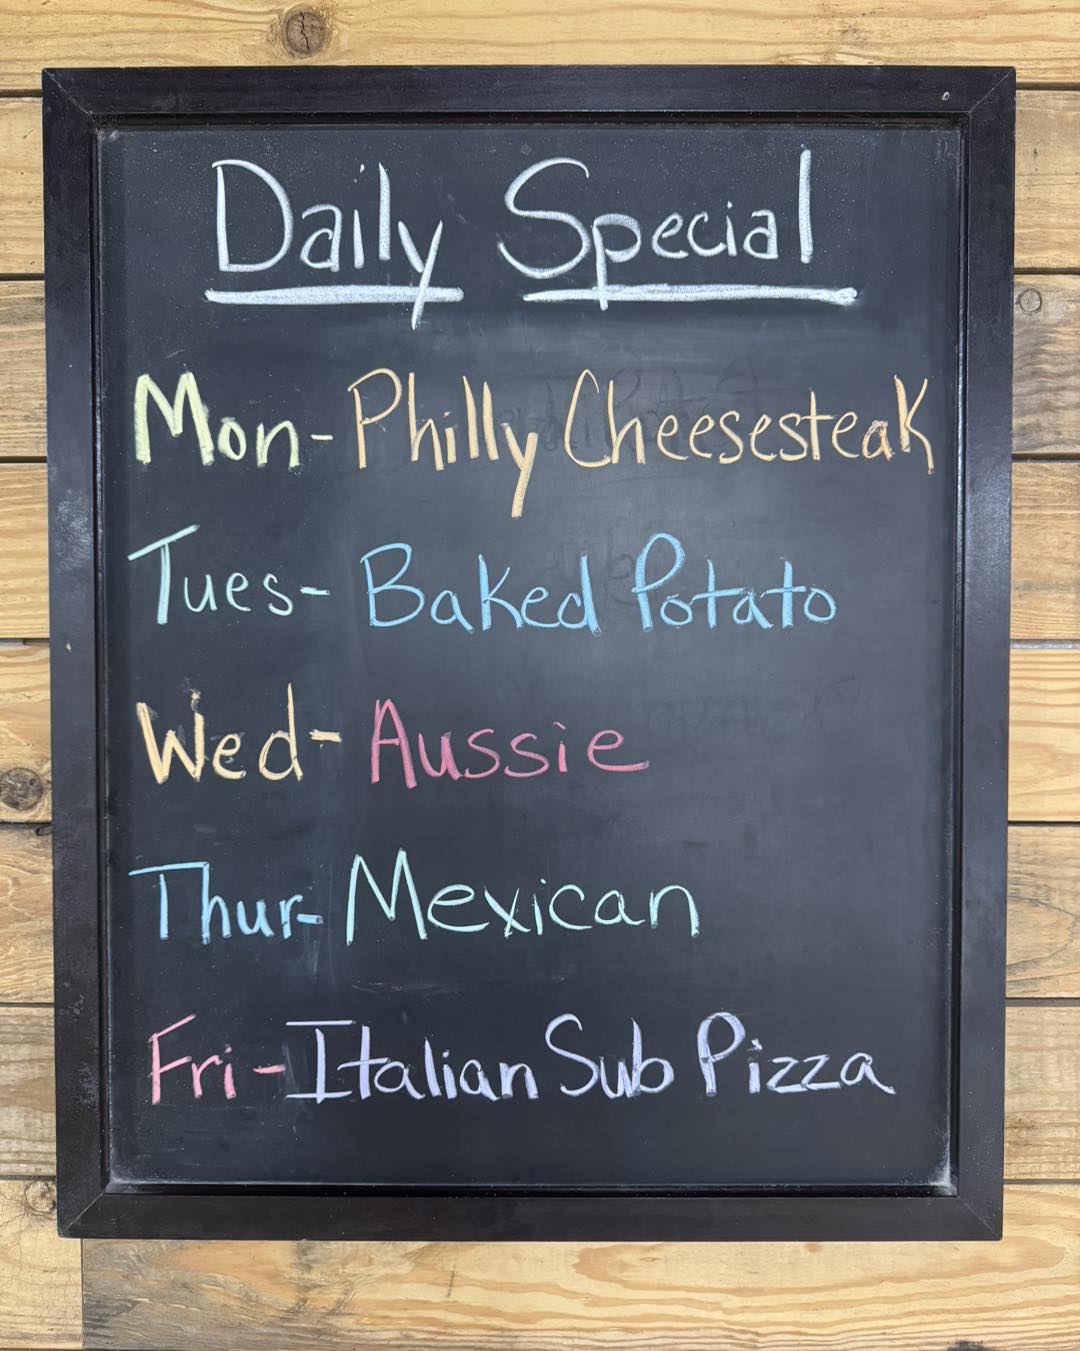 Daily Special
Mon- Philly Cheesesteak
Tues- Baked Potato
Wed- Aussie
Thur- Mexican
Fri- Italian Sub Pizza